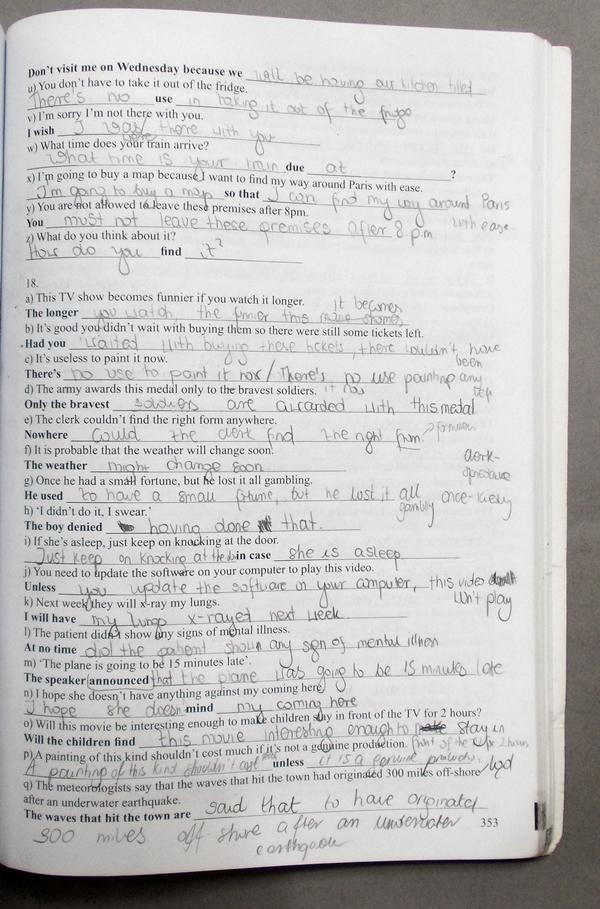 Don't visit me on Wednesday because we will be having our kitchen tiled
u) You don't have to take it out of the fridge.
There's no use in taking it out of the fridge
v) I'm sorry I'm not there with you.
I wish I was there with you
w) What time does your train arrive?
What time is your train due at ?
x) I'm going to buy a map because I want to find my way around Paris with ease.
I'm going to buy a map so that I can find my way around Paris with ease
y) You are not allowed to leave these premises after 8pm.
You must not leave these premises after 8 p.m
z) What do you think about it?
How do you find it?
18.
a) This TV show becomes funnier if you watch it longer. it becomes
The longer you watch the funnier this
b) It's good you didn't wait with buying them so there were still some tickets left.
Had you waited with buying these tickets, there wouldn't have been any left
c) It's useless to paint it now.
There's no use to paint it now / There's no use painting it now
d) The army awards this medal only to the bravest soldiers.
Only the bravest soldiers are awarded with this medal
e) The clerk couldn't find the right form anywhere.
Nowhere could the clerk find the right form.
f) It is probable that the weather will change soon.
The weather might change soon
g) Once he had a small fortune, but he lost it all gambling.
He used to have a small fortune, but he lost it all gambling
h) 'I didn't do it, I swear.'
The boy denied having done that.
i) If she's asleep, just keep on knocking at the door.
Just keep on knocking at the in case she is asleep
j) You need to update the software on your computer to play this video.
Unless you update the software on your computer, this video won't play
k) Next week they will x-ray my lungs.
I will have my lungs x-rayed next week
l) The patient didn't show any signs of mental illness.
At no time did the patient show any sign of mental illness
m) 'The plane is going to be 15 minutes late'.
The speaker announced that the plane was going to be 15 minutes late
n) I hope she doesn't have anything against my coming here.
I hope she doesn mind my coming here
o) Will this movie be interesting enough to make children stay in front of the TV for 2 hours?
Will the children find this movie interesting enough to stay in front of the for 2 hours
p) A painting of this kind shouldn't cost much if it's not a genuine production.
A painting of this kind shouldn't cost unless it is a genuine
q) The meteorologists say that the waves that hit the town had originated 300 miles off-shore
after an underwater earthquake.
The waves that hit the town are said that to have originated
300 miles off shore after an underwater
earthquake
353